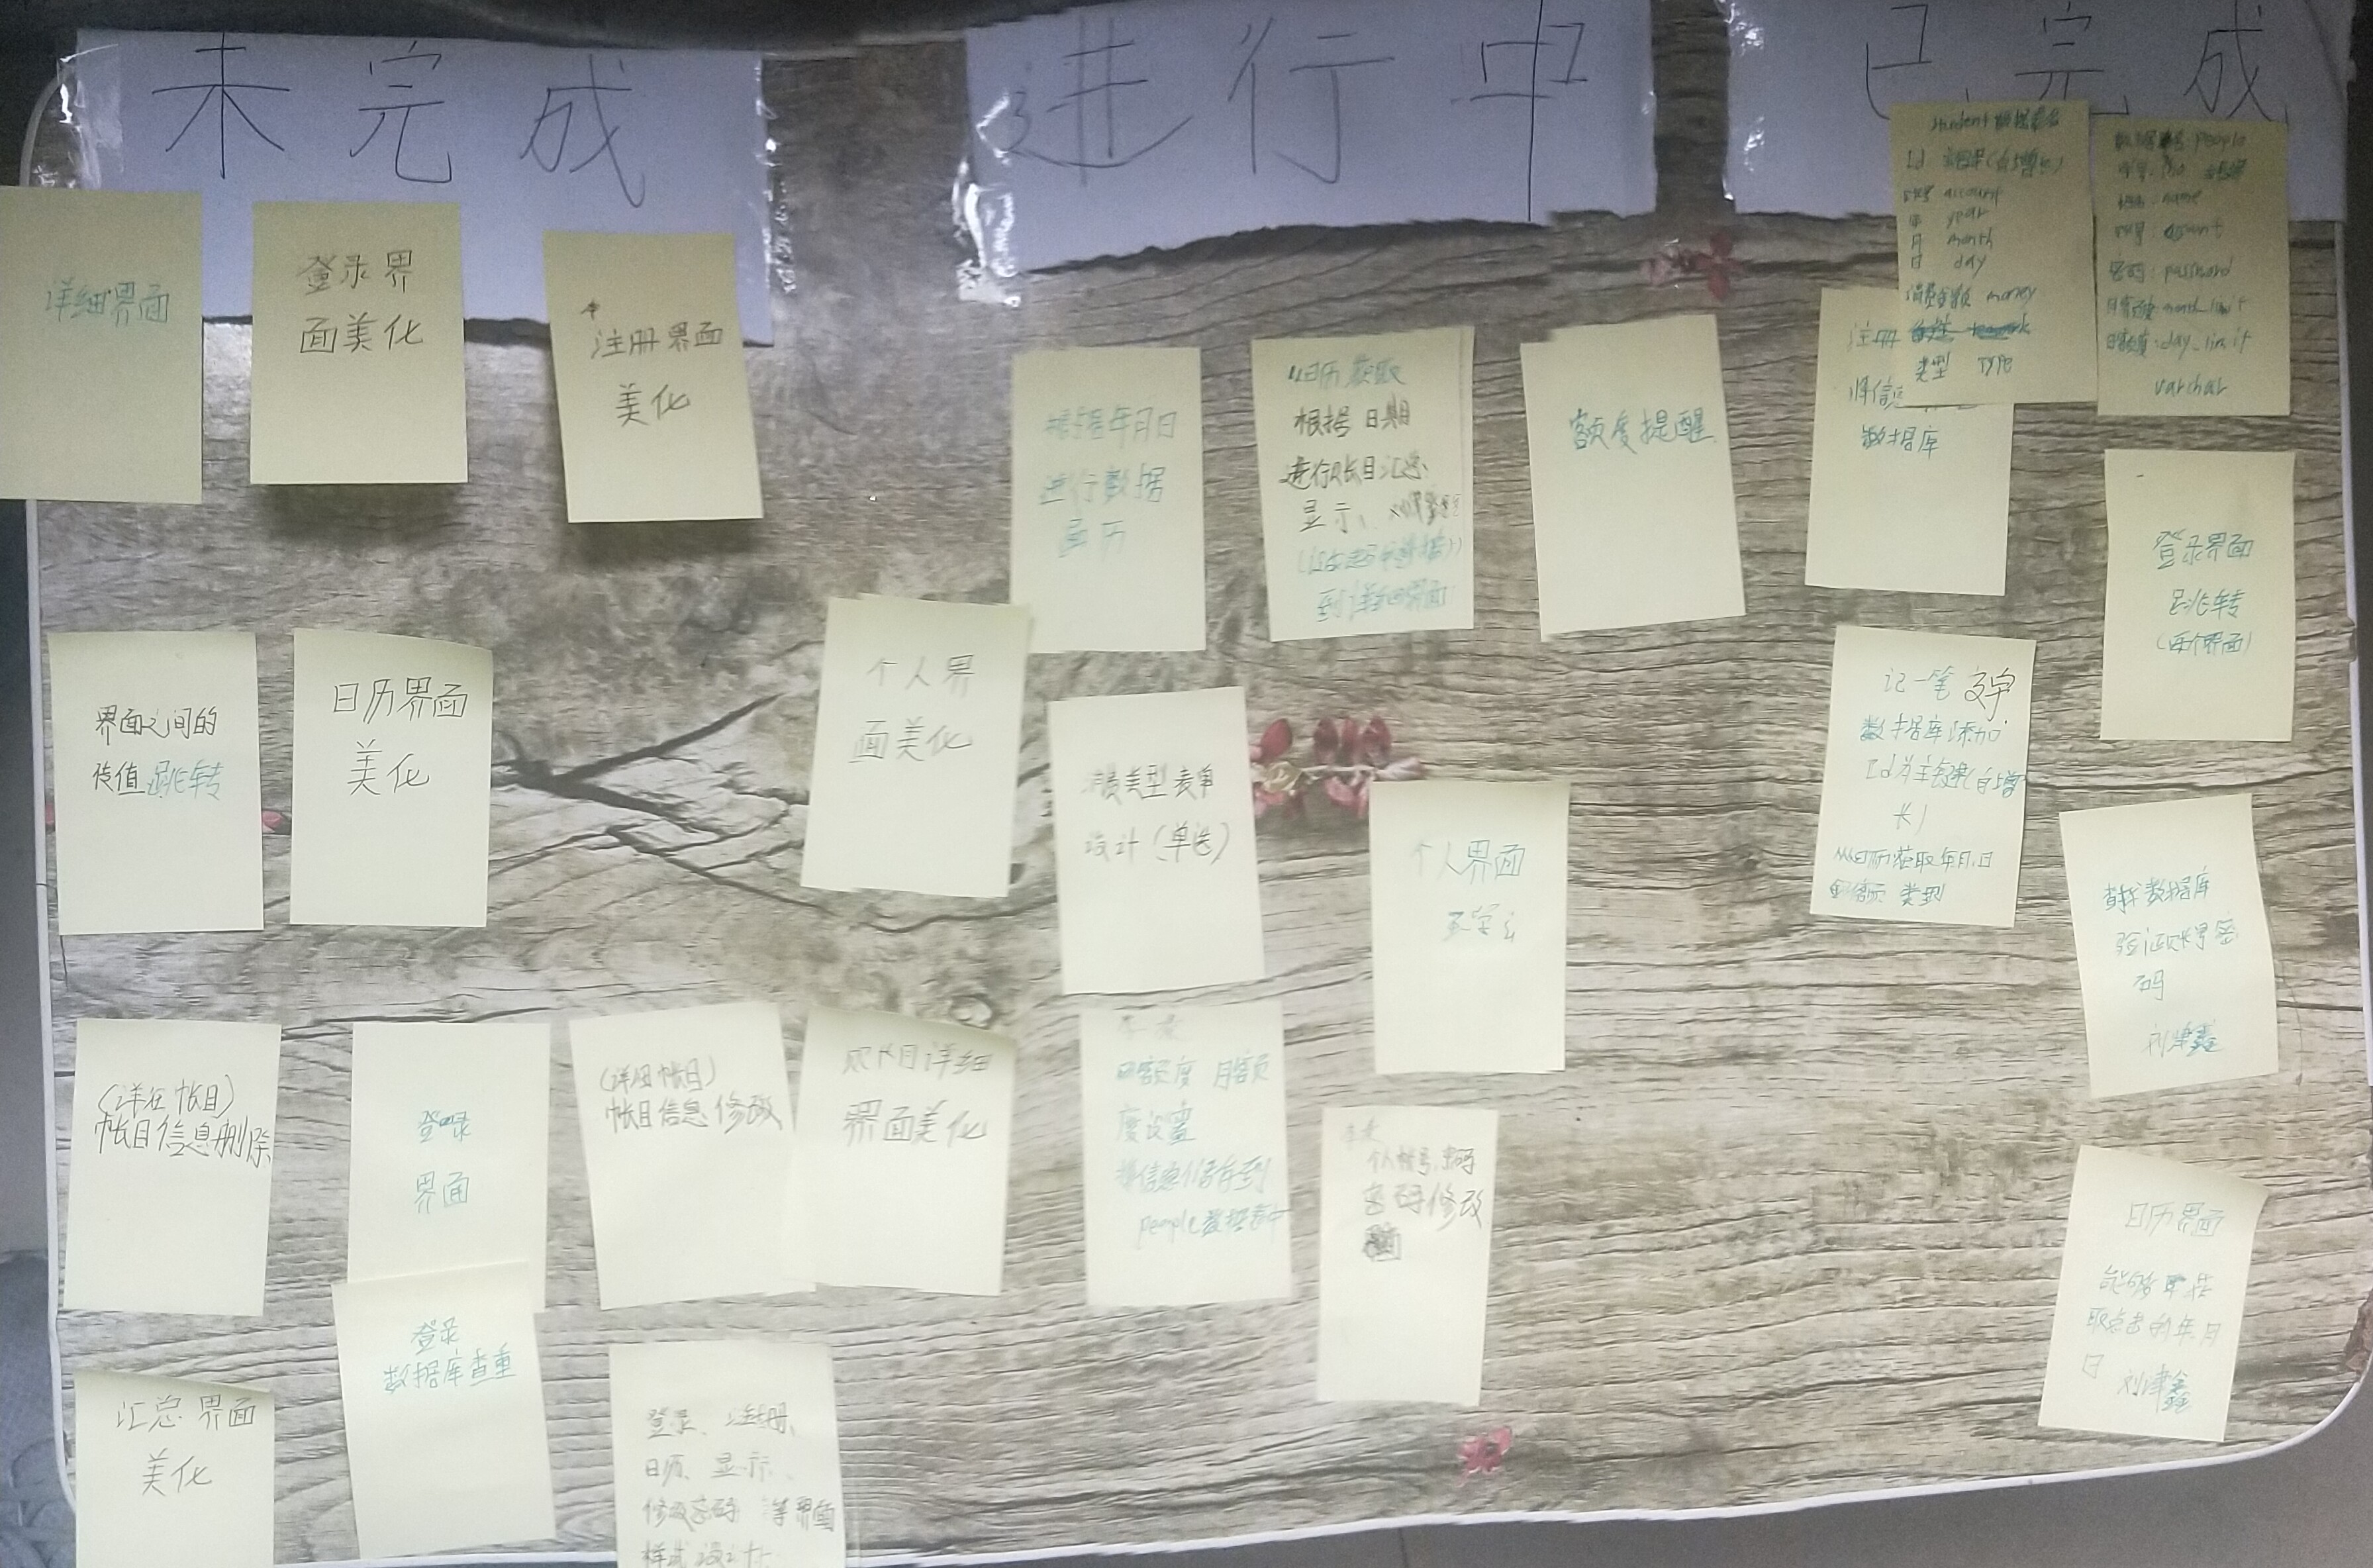 未完成
详细界面
登录界
面美化
注册界面
美化
界面之间的
传值跳转
日历界面
美化
(详在帐目)
帐目信息删除
登录
界面
(详细帐目)
帐目信息修改
帐目详细
界面美化
汇总界面
美化
登录
数据库查重
登录、注册、
日历、显示、
修改密码 等界面
样式设计
进行中
根据年月日
进行数据
遍历
从日历获取
根据日期
进行账目汇总
显示、
到详细界面
额度提醒
个人界
面美化
消费类型表单
设计(单选)
个人界面
日额度 月额
度设置
将信息储存到
people数据表中
个人帐号、密码
密码修改
已完成
student 数据表名
Id 主键(自增长)
账号 account
年 year
月 month
日 day
消费金额 money
类型 TYPE
数据表名:people
姓名:name
密码:password
月额度:month_limit
日额度:day_limit
varchar
注册
将信息
数据库
登录界面
跳转
(两个界面)
记一笔 文字
数据库添加
Id为主键(自增
长)
从日历获取年月日
金额 类型
查找数据库
验证账号密
码
刘津鑫
日历界面
能够获
取点击的年月
日 刘津鑫